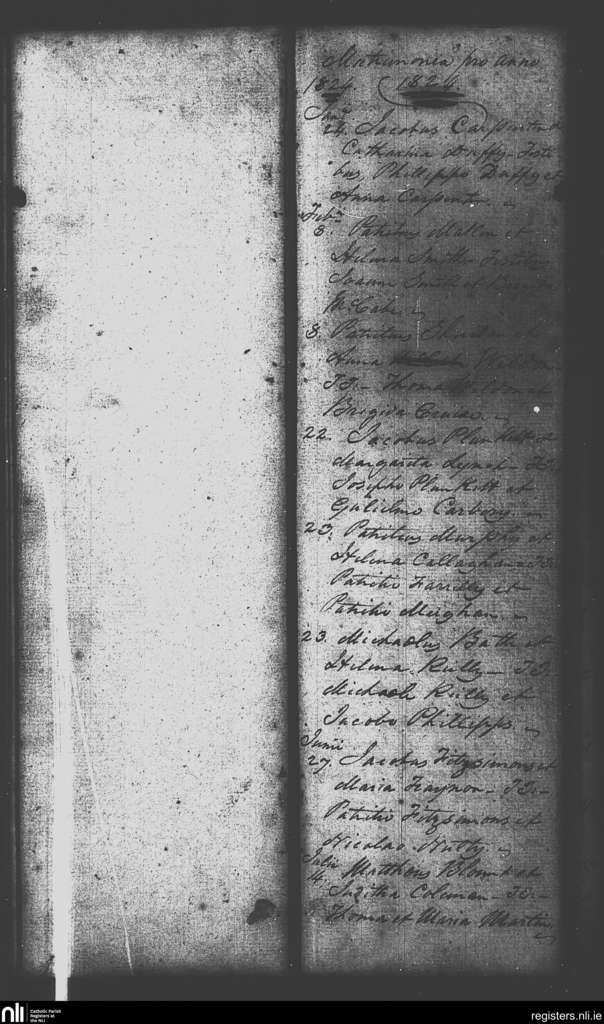 Matrimonia pro anno
1824. 1824
Janii
24. Jacobus Carpenter
Catharina Duffy - Testi
bus Phillippo Duffy et
Anna Carpenter
Feb
3. Patritius et
Helena Smith Testibus
Joanne Smith et
McCabe
8. Patritius
Anna
TB - Thoma et
Brigida Cruise
22. Jacobus Plunkett et
Margarita Lynch - TB
Josepho Plunkett et
Gulielmo Carbery
23. Patritius Murphy et
Helena Callaghan - TB
Patritio Farrelly et
Patritio Meighan
23. Michaelus Bath et
Helena Reilly - TB
Michaele Reilly et
Jacobo Phillipps
Junii
27. Jacobus Fitzsimons et
Maria Traynor - TB -
Patritio Fitzsimons et
Nicolao
Julii
14. Mattheus Blount et
Coleman - TB -
Thoma et Maria Martin
nli Catholic Parish
Registers at
the NLI
registers.nli.ie